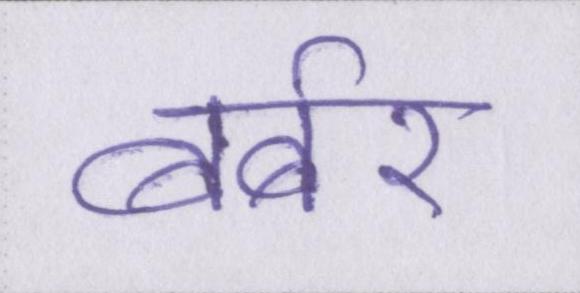 बर्बर